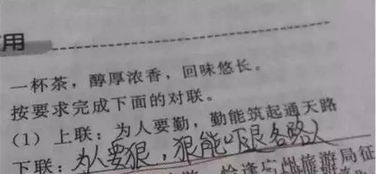 用
一杯茶，醇厚浓香，回味悠长。
按要求完成下面的对联。
(1) 上联：为人要勤，勤能筑起通天路
下联：为人要狠，狠能吓退各路人
旅游局征